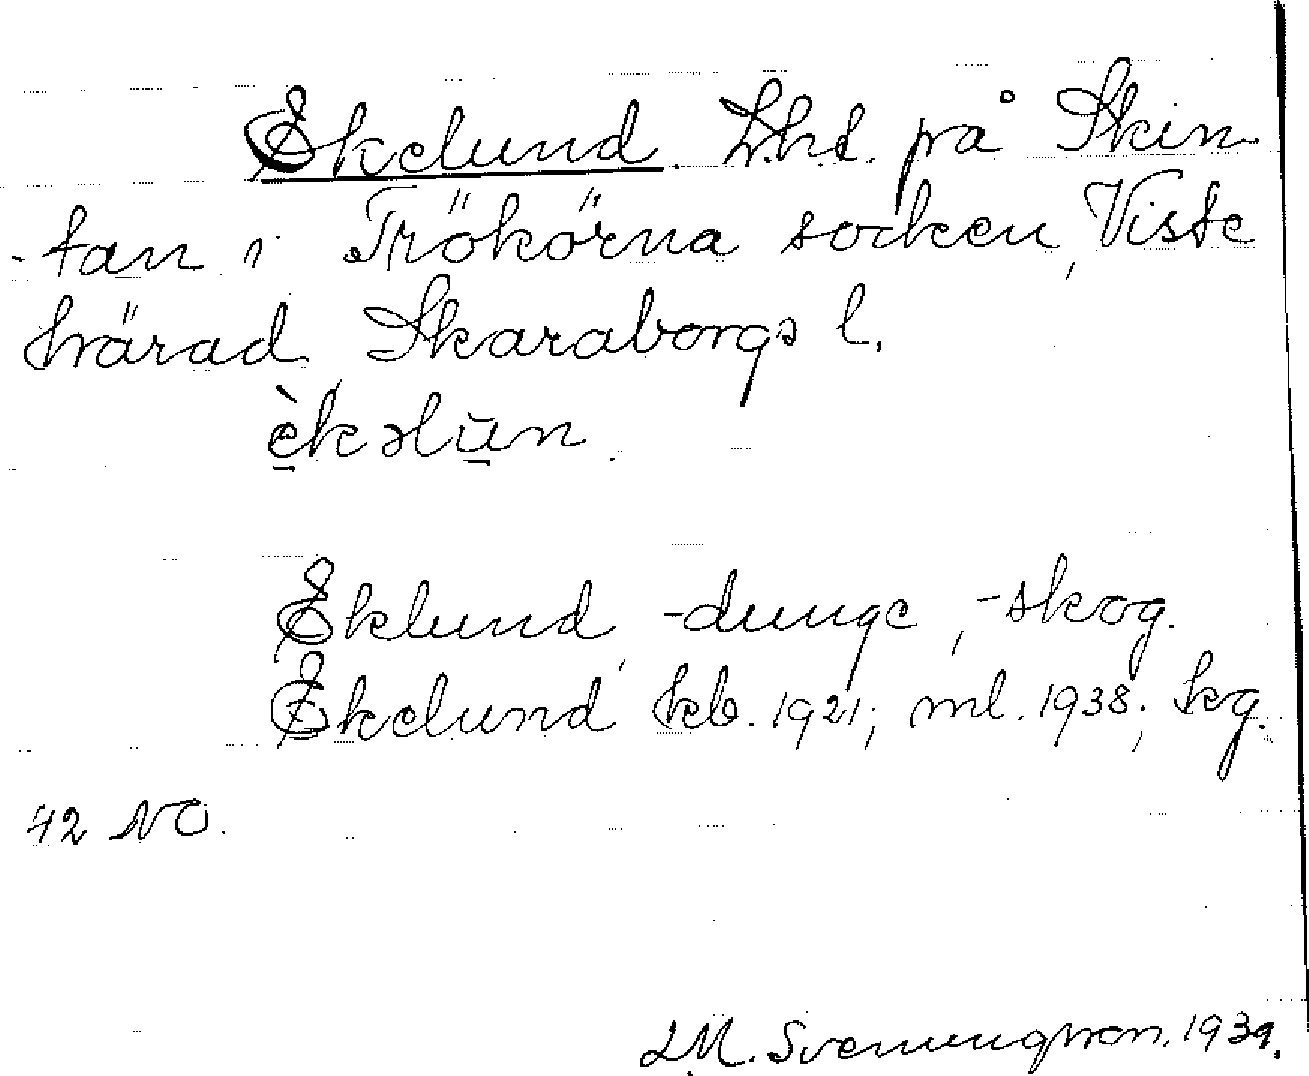 Ekelund. Lht. på Skin-
tan i Trökörna socken, Viste
härad Skaraborgs l.
è̱kəlu̱n.
Eklund, -dunge, -skog.
Ekelund kb. 1921; ml. 1938;
42 NO.
L.M. Svenungsson. 1939.